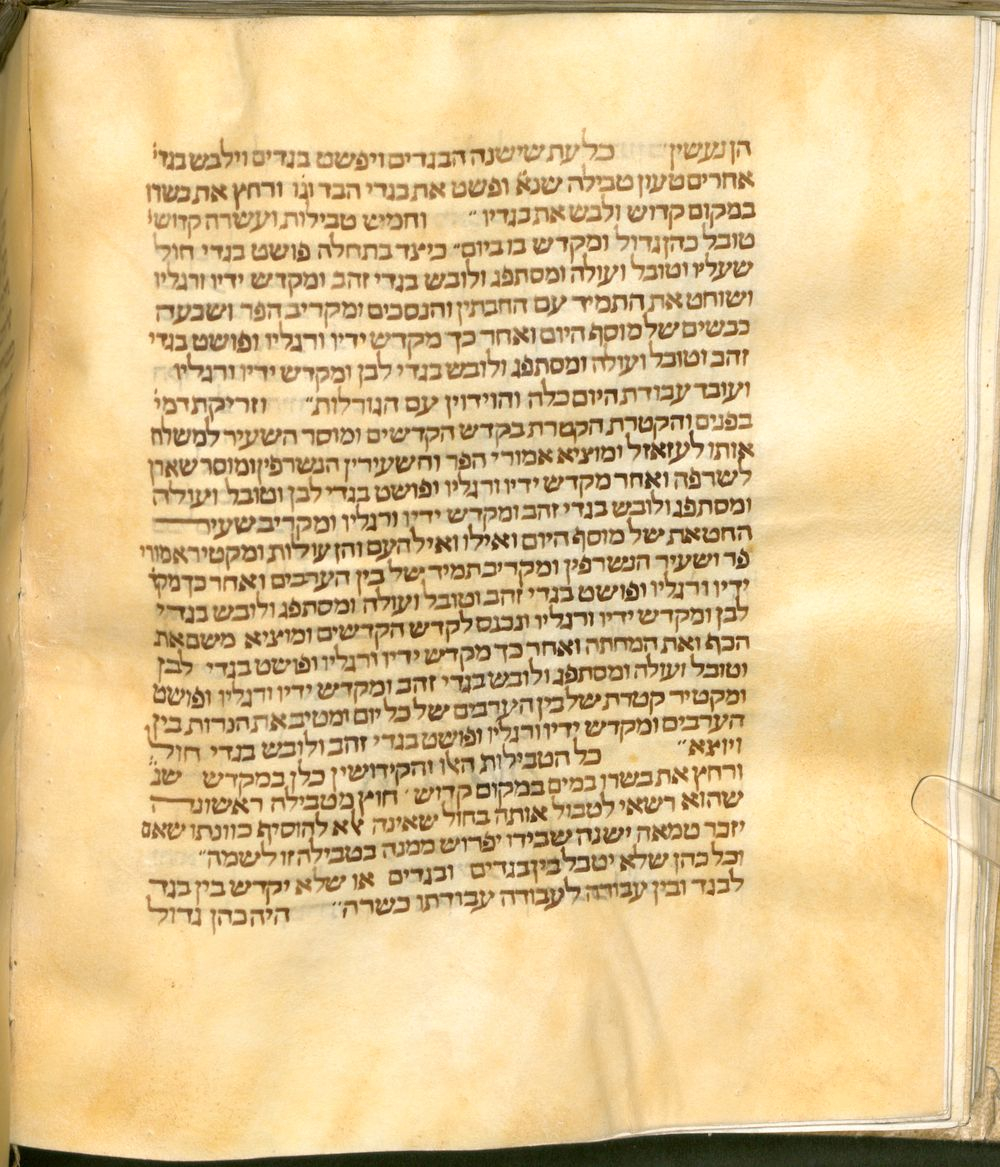 הן נעשין״ כל עת שישנה הבגדים ויפשט בגדים וילבש בגדי׳
אחרים טעון טבילה שנא׳ ופשט את בגדי הבד וגו׳ ורחץ את בשרו
במקום קדוש ולבש את בגדיו״ וחמיש טבילות ועשרה קדושי׳
טובל כהן גדול ומקדש בו ביום״ כיצד בתחלה פושט בגדי חול
שעליו וטובל ועולה ומסתפג ולובש בגדי זהב ומקדש ידיו ורגליו
ושוחט את התמיד עם החבתין והנסכים ומקריב הפר ושבעה
כבשים של מוסף היום ואחר כך מקדש ידיו ורגליו ופושט בגדי
זהב וטובל ועולה ומסתפג ולובש בגדי לבן ומקדש ידיו ורגליו
ועובד עבודת היום כלה והוידוין עם הגורלות״ וזריקת דמי׳
בפנים והקטרת הקטרת בקדש הקדשים ומוסר השעיר למשלח
אותו לעזאזל ומוציא אמורי הפר והשעירין הנשרפין ומוסר שארן
לשרפה ואחר מקדש ידיו ורגליו ופושט בגדי לבן וטובל ועולה
ומסתפג ולובש בגדי זהב ומקדש ידיו ורגליו ומקריב שעיר
החטאת של מוסף היום ואילו ואיל העם והן עולות ומקטיר אמורי
פר ושעיר הנשרפין ומקריב תמיד של בין הערבים ואחר כך מקד׳
ידיו ורגליו ופושט בגדי זהב וטובל ועולה ומסתפג ולובש בגדי
לבן ומקדש ידיו ורגליו ונכנס לקדש הקדשים ומוציא משם את
הכף ואת המחתה ואחר כך מקדש ידיו ורגליו ופושט בגדי לבן
וטובל ועולה ומסתפג ולובש בגדי זהב ומקדש ידיו ורגליו ופושט
ומקטיר קטרת של בין הערבים של כל יום ומטיב את הנרות בין
הערבים ומקדש ידיו ורגליו ופושט בגדי זהב ולובש בגדי חול
ויוצא״ כל הטבילות האלו והקידושין כלן במקדש שנ׳
ורחץ את בשרו במים במקום קדוש׳ חוץ מטבילה ראשונה
שהוא רשאי לטבול אותה בחול שאינה אלא להוסיף כוונתו שאם
יזכר טמאה ישנה שבידו יפרוש ממנה בטבילה זו לשמה״
וכל כהן שלא יטבל בין בגדים ובגדים או שלא יקדש בין בגד
לבגד ובין עבודה לעבודה עבודתו כשרה״ היה כהן גדול